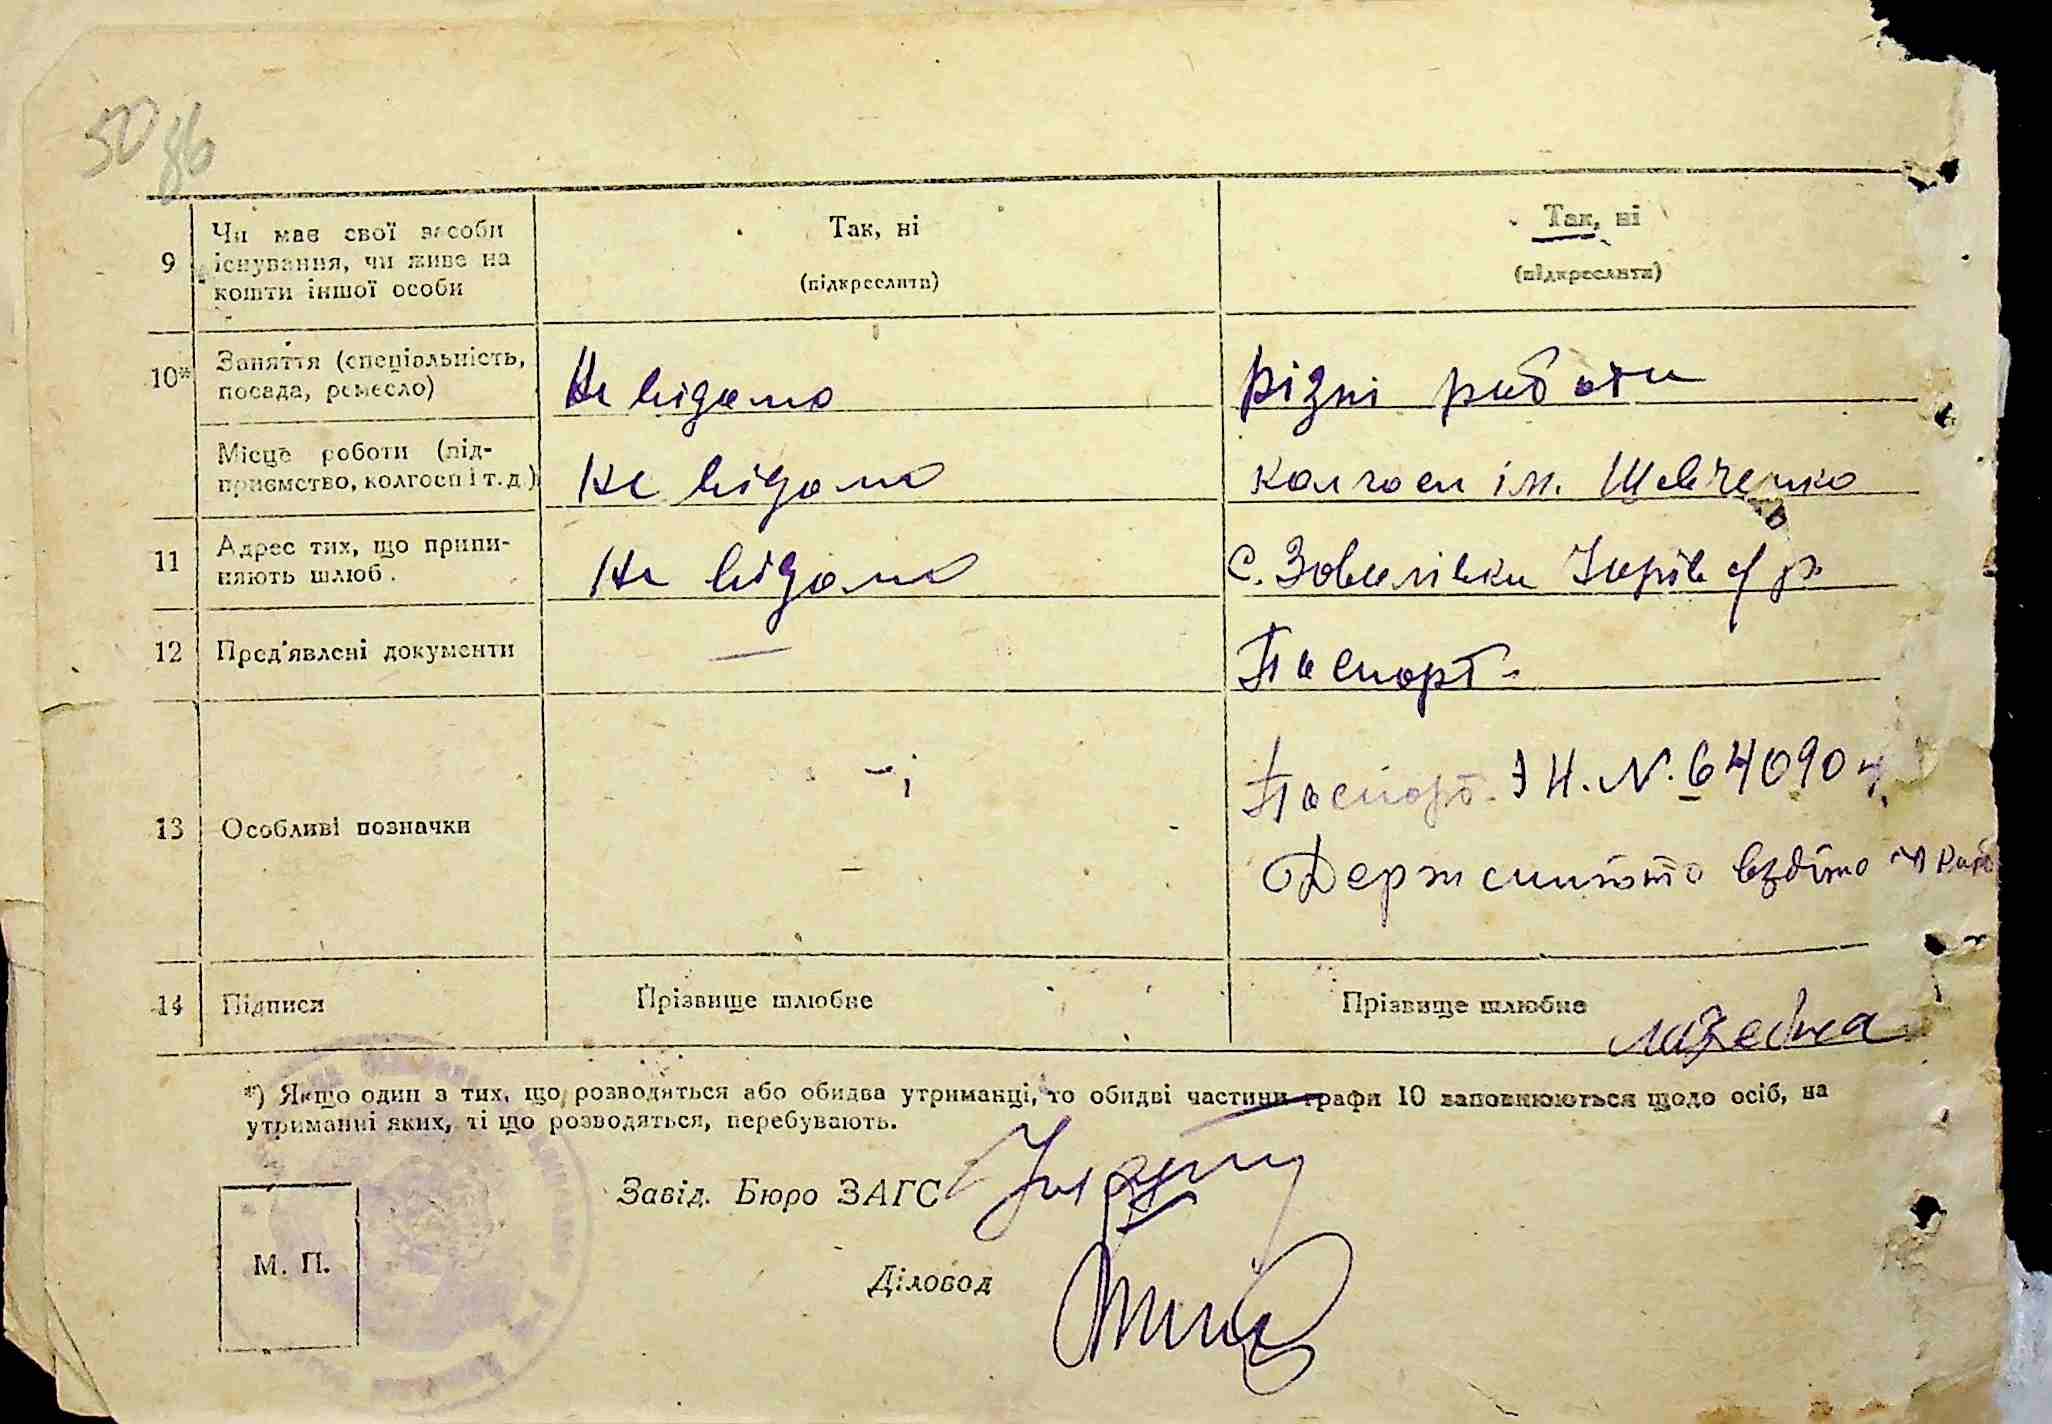 50 86
9 Чи має свої засоби існування, чи живе на кошти іншої особи
Так, ні
(підкреслити)
Так, ні
(підкреслити)
10*) Заняття (спеціальність, посада, ремесло)
Не відомо
Різні роботи
Місце роботи (підприємство, колгосп і т.д.)
Не відомо
Колгосп ім. Шевченко
11 Адрес тих, що припиняють шлюб.
Не відомо
С.
12 Пред'явлені документи
—
Паспорт.
13 Особливі позначки
Паспорт. І Н. N. 640904
Держмито
14 Підписи
Прізвище шлюбне
Прізвище шлюбне
*) Якщо один з тих, що розводяться або обидва утриманці, то обидві частини графи 10 заповнюються щодо осіб, на
утриманні яких, ті що розводяться, перебувають.
Завід. Бюро ЗАГС
М. П.
Діловод